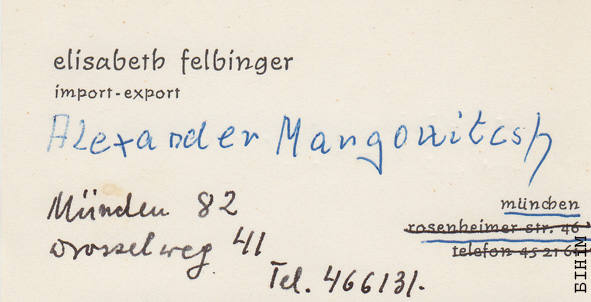 elisabeth felbinger
import-export
Alexander Mangowitcsh
München 82
Drosselweg 41
Tel. 466131.
münchen
rosenheimer str. 46
telefon 45 21 66
БІНІМ